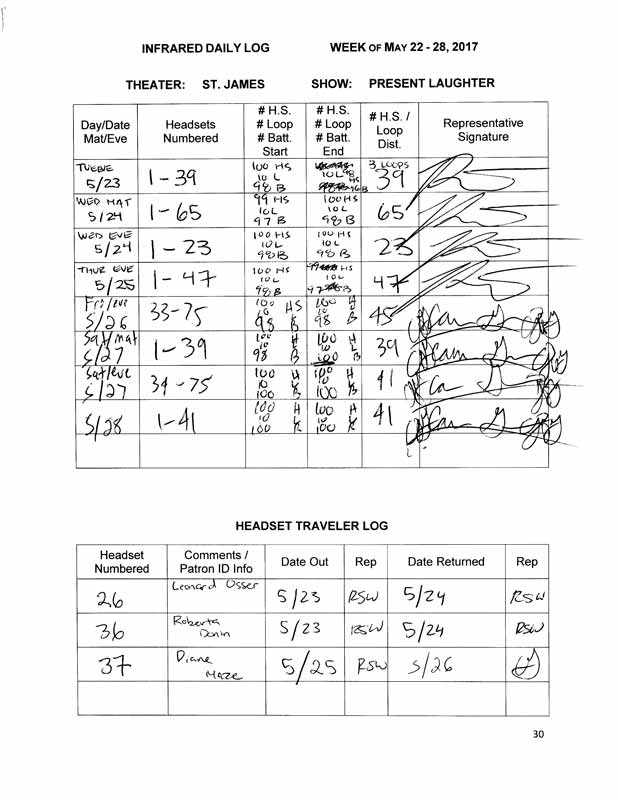 INFRARED DAILY LOG WEEK OF MAY 22 - 28, 2017
THEATER: ST. JAMES SHOW: PRESENT LAUGHTER
Day/Date
Mat/Eve
Headsets
Numbered
# H.S.
# Loop
# Batt.
Start
# H.S.
# Loop
# Batt.
End
# H.S. /
Loop
Dist.
Representative
Signature
TUE EVE
5/23
1-39
100 HS
10 L
98 B
10 L
3 LOOPS
39
WED MAT
5/24
1-65
99 HS
10L
97 B
100 HS
10 L
98 B
65
WED EVE
5/24
1-23
100 HS
10 L
98 B
100 HS
10 L
98 B
23
THUR EVE
5/25
1-47
100 HS
10 L
98 B
HS
10 L
47
Fri/eve
5/26
33-75
100 HS
10 L
98 B
100 H
10 L
98 B
45
Sat/mat
5/27
1-39
100 H
10 L
98 B
100 H
10 L
100 B
39
Sat/eve
5/27
34-75
100 H
10
100 B
100 H
10
100 B
41
5/28
1-41
100 H
10
100
100 H
10
100
41
HEADSET TRAVELER LOG
Headset
Numbered
Comments /
Patron ID Info
Date Out
Rep
Date Returned
Rep
26
Leonard Osser
5/23
RSW
5/24
RSW
36
Roberta
Donin
5/23
RSW
5/24
RSW
37
Diane
Maze
5/25
RSW
5/26
30